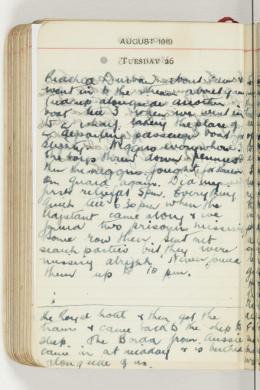 AUGUST 1919
TUESDAY 26
Reached Durban about 7am &
went in to the about 9am
tied up alongside another
boat till 3 when we went in
to a wharf, taking the place of
a departed passenger boat
everywhere
the boys threw down pennies
then the fought for them
on guard again. Did my
first relief 5pm. Everything
quiet till 6.30pm when the
Adjutant came along & we
found two prisoners missing
Some row then. Sent out
search parties but they were
missing alright. Never found
them up to 10 pm.
the Royal hotel & then got the
tram & came back to the ship to
sleep. The Borda from Aussie
came in at midday & is berthed
alongside of us.